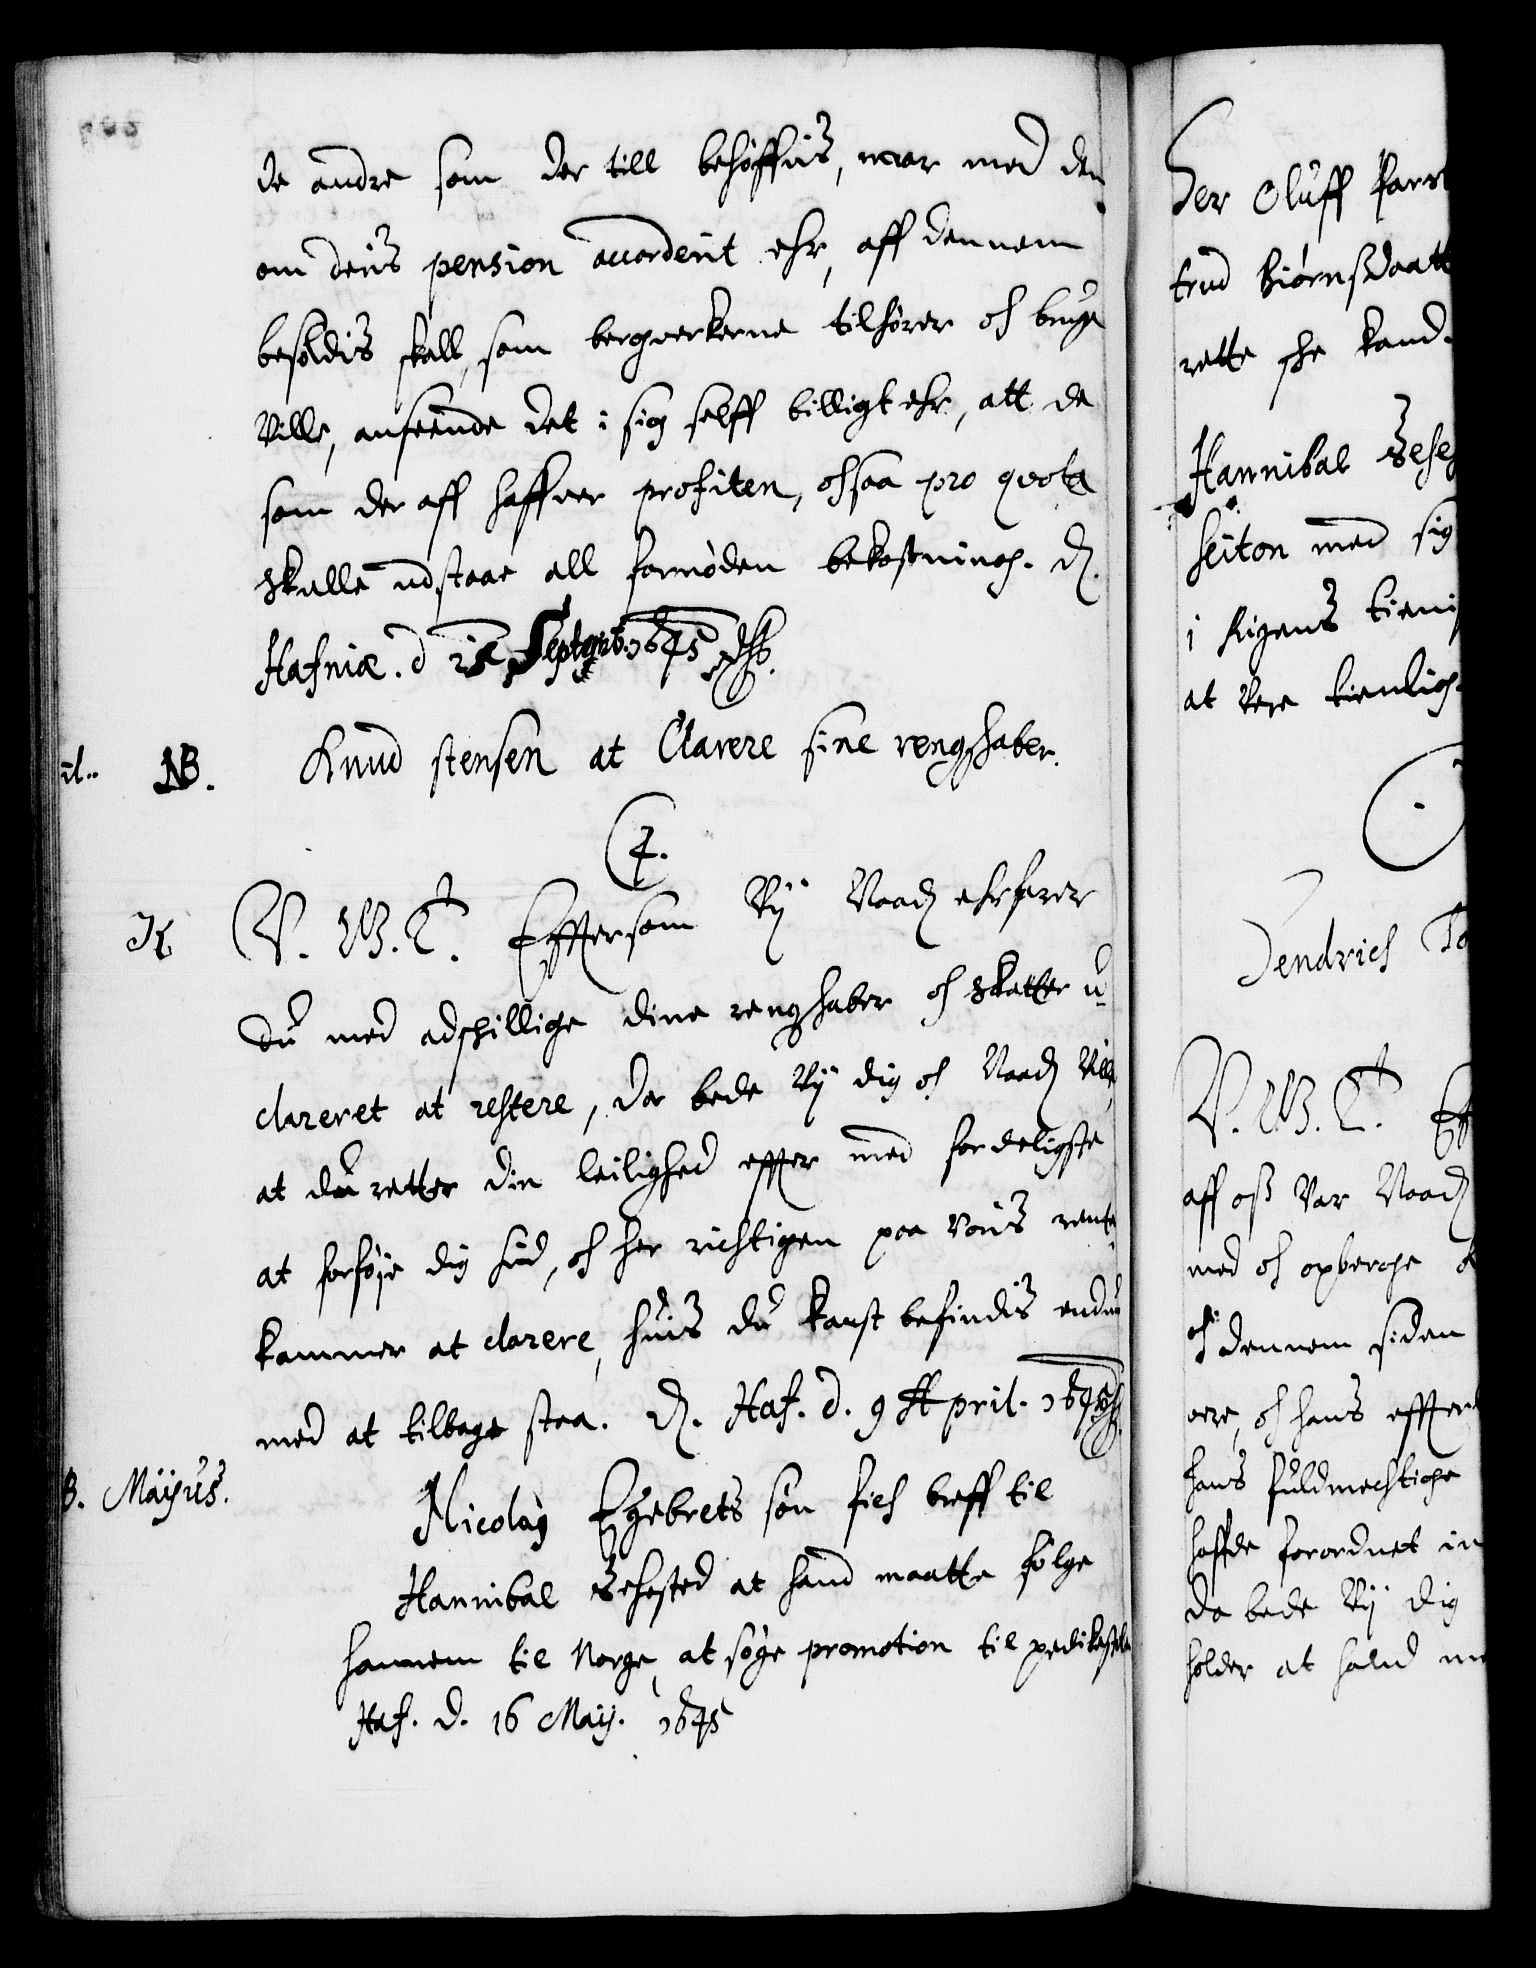 de andre som der till behøffvis, naar med dem
om deris pension accorderit ehr, aff dennem
besoldis skall, som bergverkerne tilhører och bruge
Ville, anseende det i sig selff billigt ehr, att de
som der aff haffver profiten, ochsaa pro qvota
skulle udstaae all fornøden bekostning. D.
Hafniæ. d Septemb. 1645
NB. Knud stensen at Clarere sine rengschaber.
V. G. T. Efftersom Vij Naad. ehrfarer
du med adschillige dine rengschaber och skatter u-
clareret at restere, da bede Vij dig och Naad. Ville,
at du retter din leilighed effter med forderligste
at forføje dig hid, och her richtigen paa voris rente
kammer at clarere, huis du kanst befindis endnu
med at tilbage staa. D. Haf. d. 9 April. 1645
B. Maijus.
Nicolaÿ Egebrets søn fich breff til
Hannibal Sehested at hand maatte følge
hannem til Norge, at søge promotion til predikestolen
Haf. d. 16 Maij. 1645
Her Oluff
trud Biørnsdaatt
rette sche kand.
Hannibal Sehe
seiton med sig
i Rigens tieni
at vere tienlig.
Hendrich
V. G. T. Eff
aff oss Var Naad.
med och opberge
och dennem siden
vere, och hans effter
hans fuldmechtige
haffde forordnet in
da bede Vij dig
holder at haand